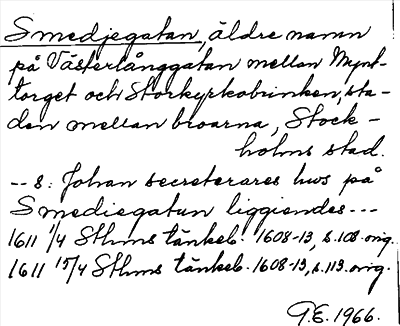 Smedjegatan, äldre namn
på Västerlånggatan mellan Mynt-
torget och Storkyrkobrinken, sta-
den mellan broarna, Stock-
holms stad.
-- 8: Johan secreterares hws på
Smediegatun liggiendes---
1611 1/4 Sthms tänkeb. 1608-13, s. 108. orig.
1611 15/4 Sthms tänkeb. 1608-13, s. 113. orig.
G.E. 1966.